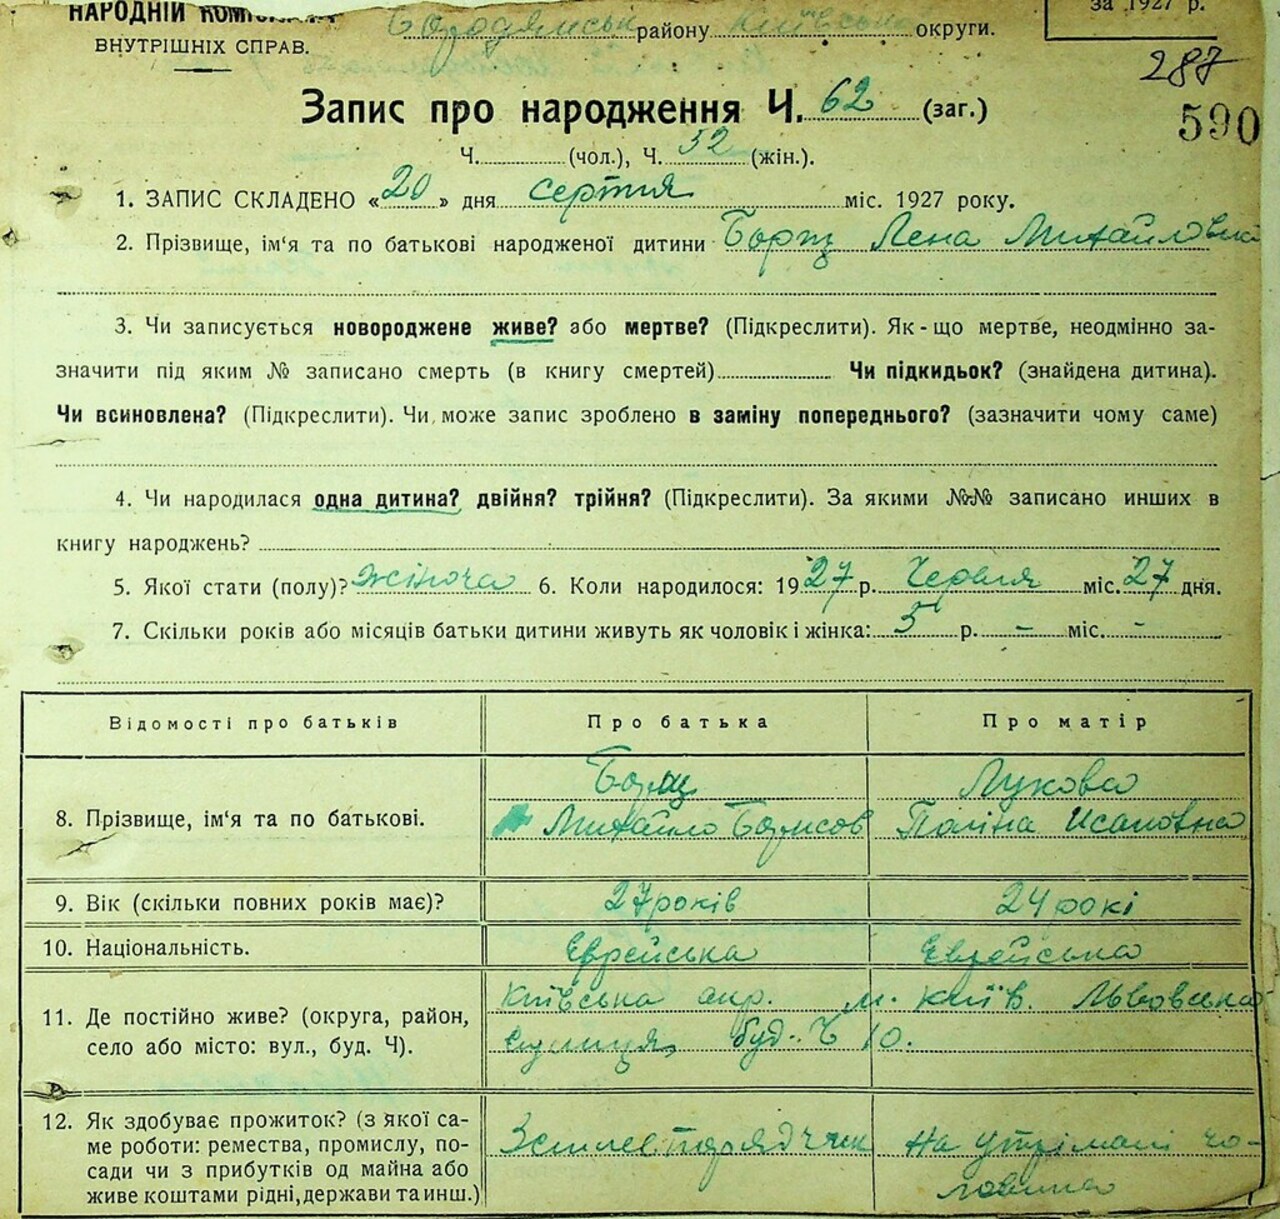 НАРОДНІЙ КОМІСАРІЯТ
ВНУТРІШНІХ СПРАВ.
Бородянськ району Київська округи.
за 1927 р.
287
590
Запис про народження Ч. 62 (заг.)
Ч. (чол.), Ч. 52 (жін.).
1. ЗАПИС СКЛАДЕНО «20» дня серпня міс. 1927 року.
2. Прізвище, ім'я та по батькові народженої дитини Борщ Лена Михайловна
3. Чи записується новороджене живе? або мертве? (Підкреслити). Як-що мертве, неодмінно за-
значити під яким № записано смерть (в книгу смертей) Чи підкидьок? (знайдена дитина).
Чи всиновлена? (Підкреслити). Чи може запис зроблено в заміну попереднього? (зазначити чому саме)
4. Чи народилася одна дитина? двійня? трійня? (Підкреслити). За якими №№ записано инших в
книгу народжень?
5. Якої стати (полу)? жіноча 6. Коли народилося: 1927 р. Червня міс. 27 дня.
7. Скільки років або місяців батьки дитини живуть як чоловік і жінка: 5 р. – міс. –
Відомості про батьків Про батька Про матір
Борщ Лукова
8. Прізвище, ім'я та по батькові. Михайло Борисов Поліна Исаковна
9. Вік (скільки повних років має)? 27 років 24 рокі
10. Національність. Єврейська Єврейська
11. Де постійно живе? (округа, район,
село або місто: вул., буд. Ч).
Київська окр. м. Київ. Львовська
вулиця, буд. Ч 10.
12. Як здобуває прожиток? (з якої са-
ме роботи: ремества, промислу, по-
сади чи з прибутків од майна або
живе коштами рідні, держави та инш.)
порядчик На утрімані чо-
ловика